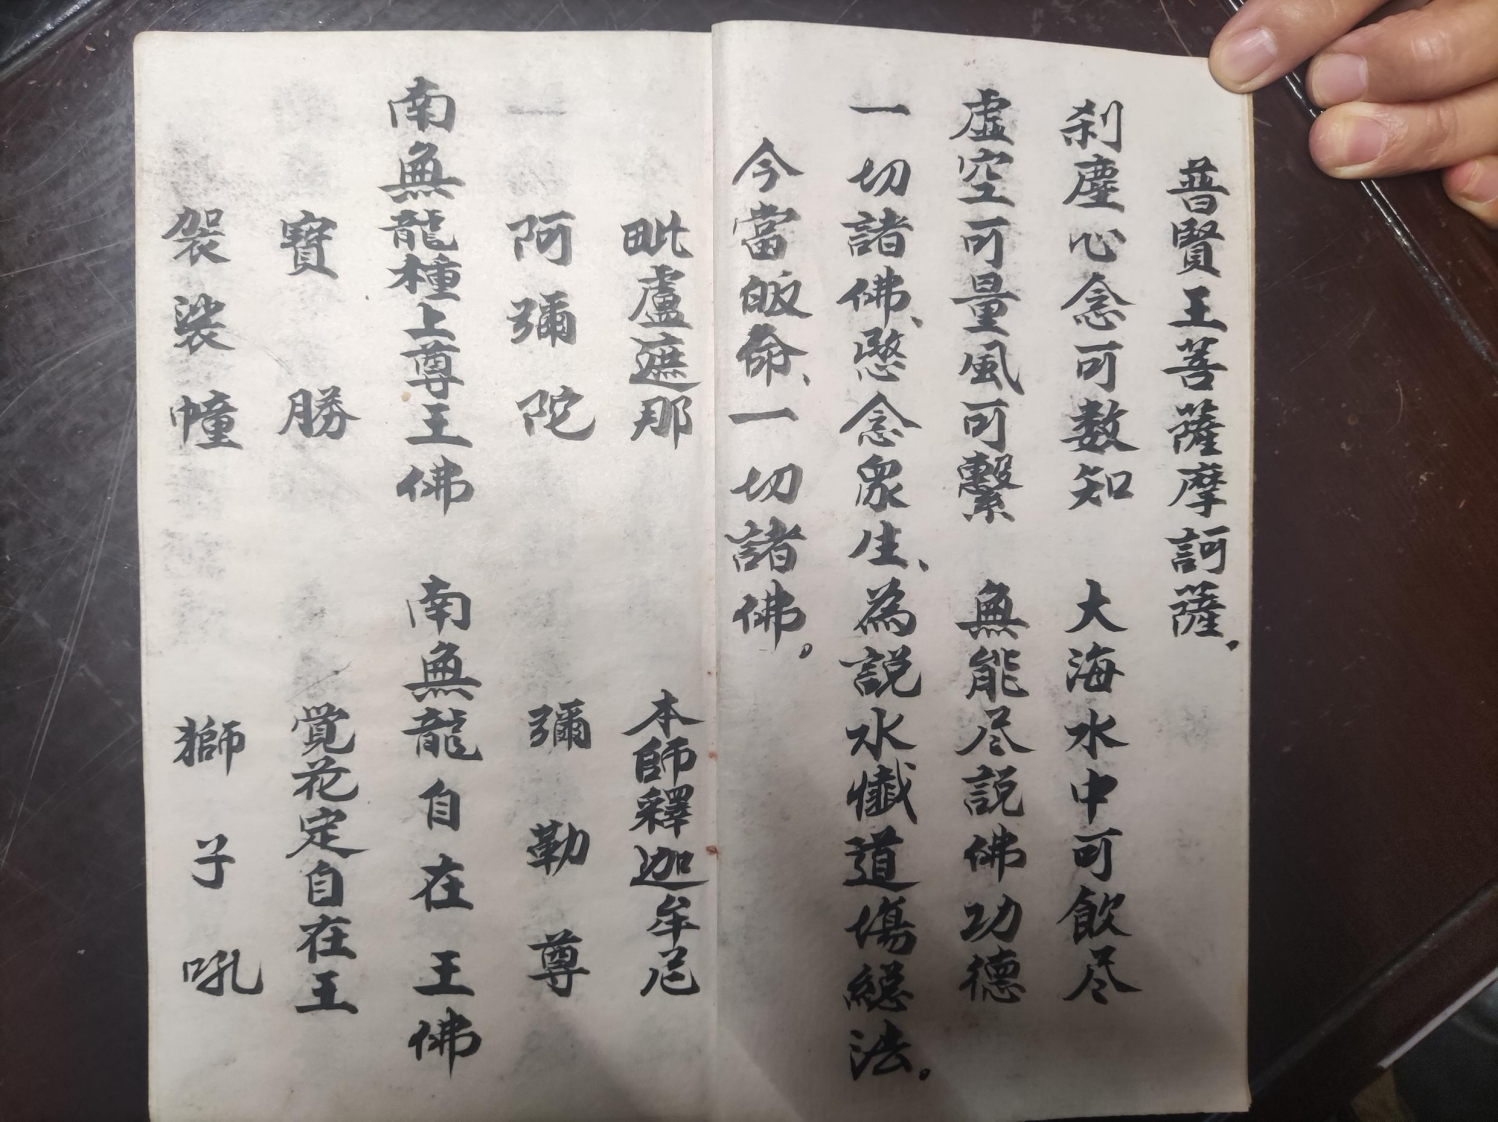 普賢王菩薩摩訶薩.
刹塵心念可数知　大海水中可飲尽
虛空可量風可繫　無能尽説佛功德
一切諸佛、愍念衆生、為説水懺道場縂法。
今當皈命、一切諸佛。
毗盧遮那　本師釋迦牟尼
阿彌陀　彌勒尊
南無龍種上尊王佛　南無龍自在王佛
寳勝　覚花定自在王
袈裟幢　獅子吼